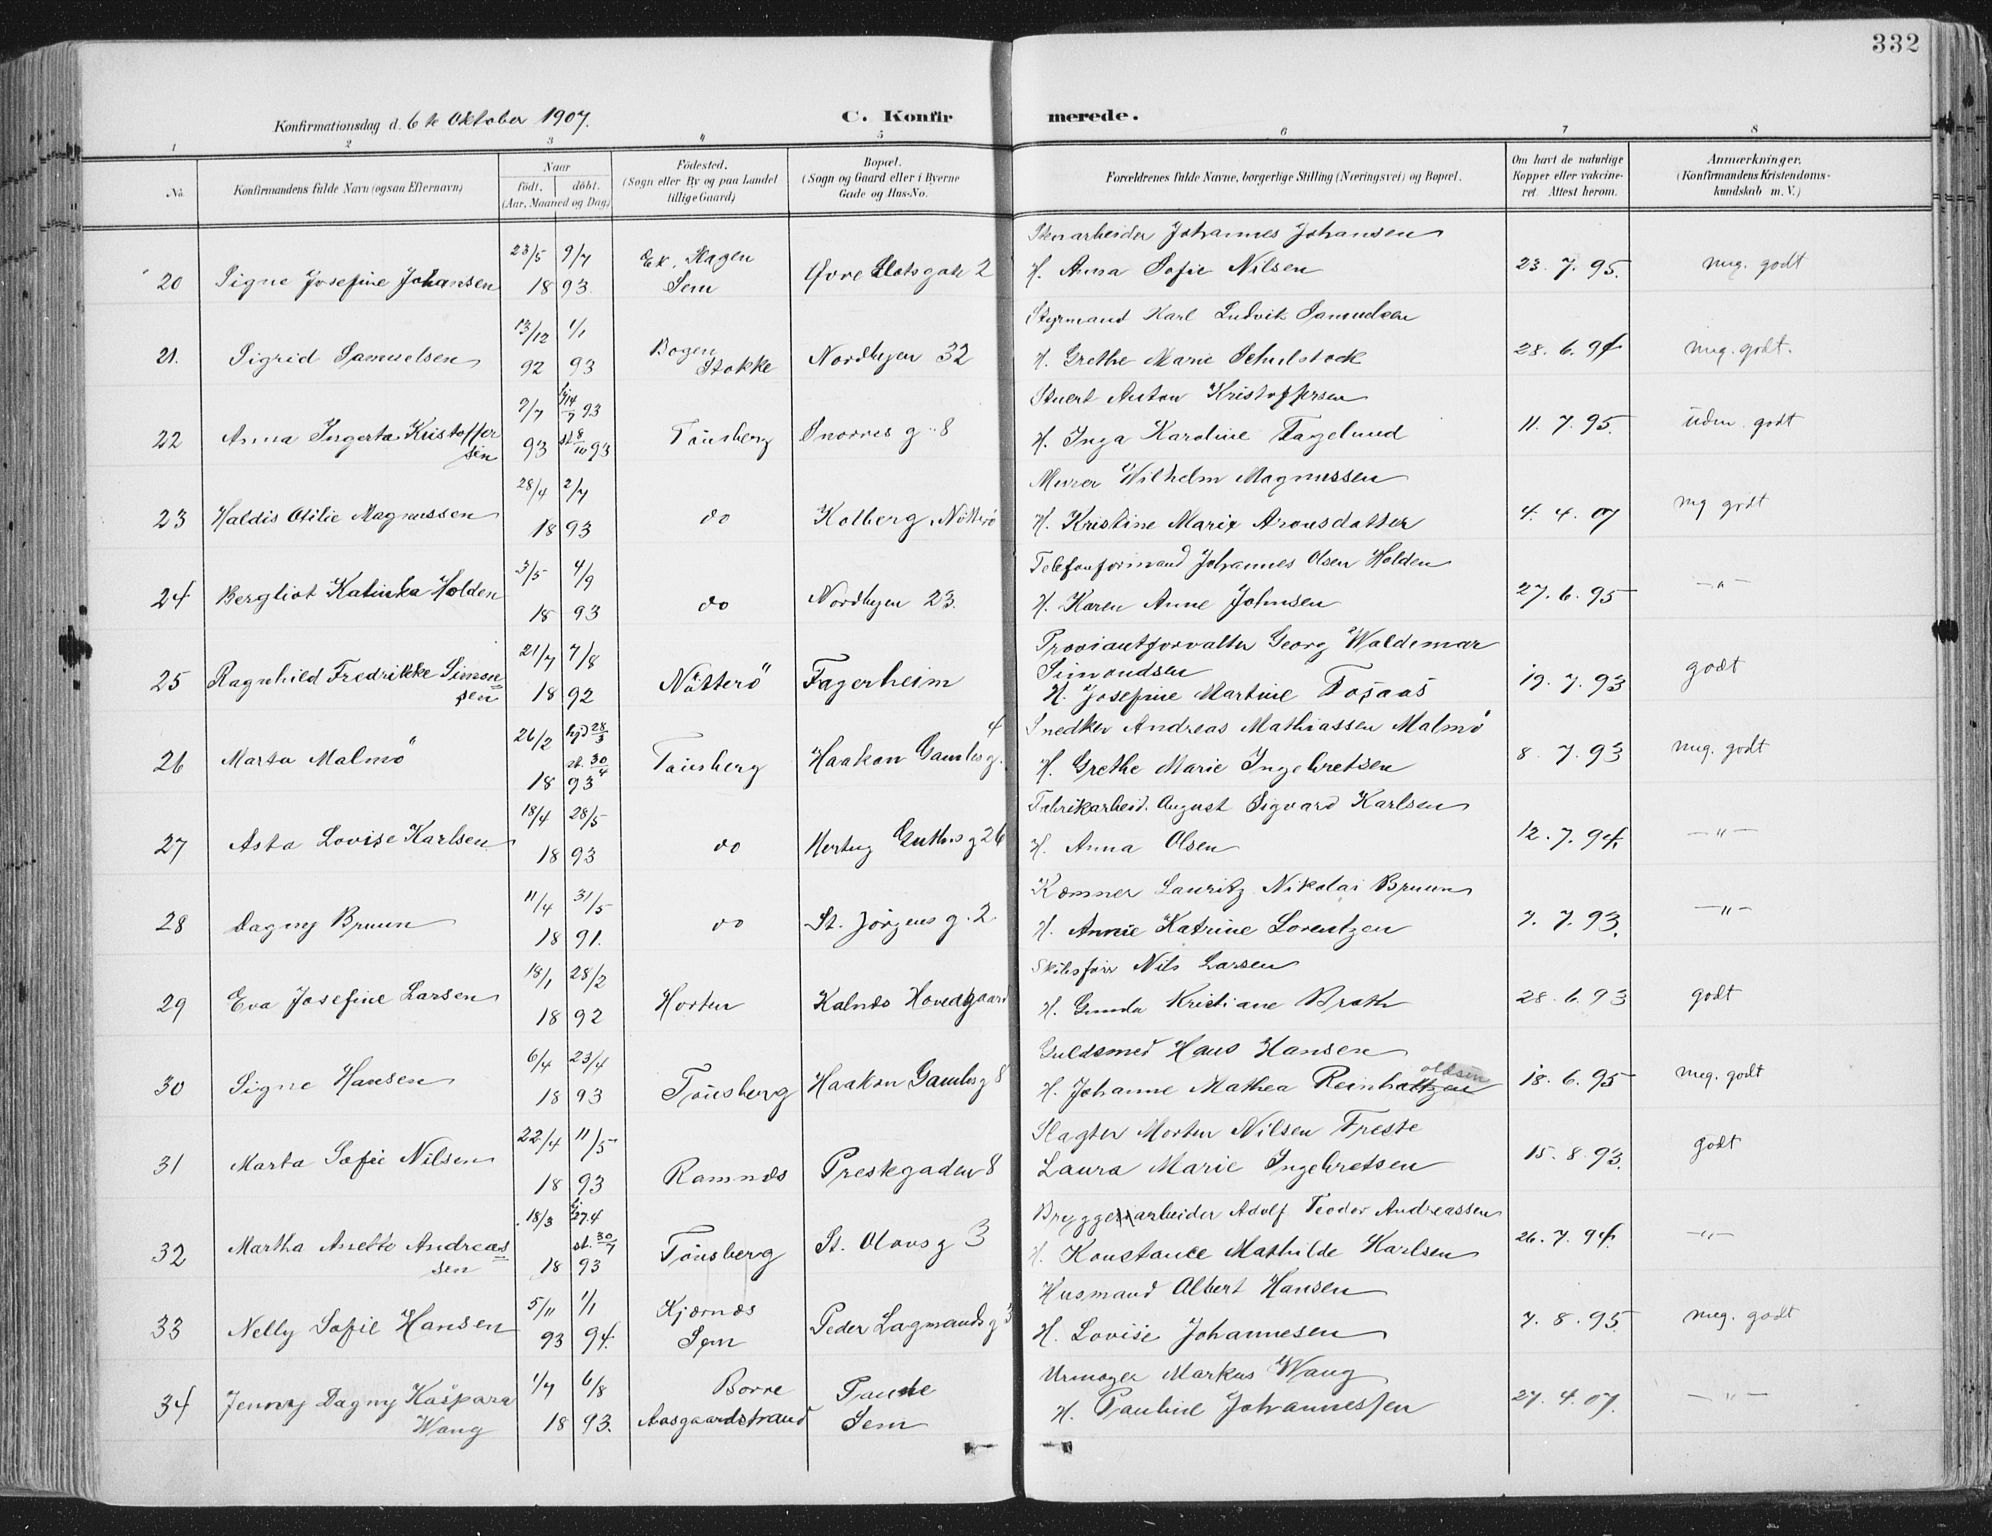 332
Konfirmationsdag d. 6te Oktober 1907.
C. Konfirmerede.
1 2 3 4 5 6 7 8
No. Konfirmandens fulde Navn (ogsaa Efternavn) Naar födt. döbt. (Aar, Maaned og Dag) Födested. (Sogn eller By og paa Landet tillige Gaard) Bopæl. (Sogn og Gaard eller i Byerne Gade og Hus-No. Forældrenes fulde Navne, borgerlige Stilling (Næringsvei) og Bopæl. Om havt de naturlige Kopper eller vakcineret. Attest herom. Anmærkninger. (Konfirmandens Kristendomskundskab m. V.)
23/5 9/7 Ek. Hagen Stenarbeider Johannes Johansen
20 Signe Josefine Johansen 18 93 Sem Øvre Slotsgate 2 H. Anna Sofie Nilsen 23. 7. 95. meg. godt
13/12 1/1 Bogen Styrmand Karl Ludvik Samuelsen
21. Sigrid Samuelsen 92 93 Stokke Nordbyen 32 H. Grethe Marie Schulstock 28. 6. 94 meg. godt.
7/7 hj 14/7 93 Stuert Anton Kristoffersen
22 Anna Ingerta Kristoffersen 93 st. 8/10 93 Tönsberg Snorres g. 8 H. Inga Karoline Fagelund 11. 7. 95. udm. godt
28/4 2/7 Murer Wilhelm Magnussen
23 Haldis Otilie Magnussen 18 93 do Kolberg, Nötterö H. Kristine Marie Aronsdatter 4. 4. 07 mg godt
3/5 4/9 Telefonformand Johannes Olsen Holden
24 Bergliot Katinka Holden 18 93 do Nordbyen 23. H. Karen Anne Johnsen 27. 6. 95 —"—
21/7 7/8 Proviantforvalter Georg Waldemar Simondsen
25 Ragnhild Fredrikke Simonsen 18 92 Nötterö Fagerheim H. Josefine Martine Tosaas 19. 7. 93 godt
26/2 hjd 28/3 st. 30/4 Snedker Andreas Mathiassen Malmö
26 Marta Malmö 18 93 Tönsberg Haakon Gamles g. 4 H. Grethe Marie Ingebretsen 8. 7. 93 meg. godt
18/4 28/5 Fabrikarbeid. August Sigvard Karlsen
27 Asta Lovise Karlsen 18 93 do Hertug Guthes g 26 H. Anna Olsen 12. 7. 94. —"—
11/4 31/5 Kæmner Lauritz Nikolai Bruun
28 Dagny Bruun 18 91. do St. Jörgens g. 2 H. Annie Katrine Lorentzen 7. 7. 93. —"—
18/1 28/2 Skibsförer Nils Larsen
29 Eva Josefine Larsen 18 92 Horten Kalnæs Hovedgaard H. Gunda Kristiane Brath 28. 6. 93 godt
6/4 23/4 Guldsmed Hans Hansen
30 Signe Hansen 18 93 Tönsberg Haakon Gamles g 8 H. Johanne Mathea Reinholtzen oldsen 18. 6. 95 meg. godt
22/4 11/5 Slagter Morten Nilsen Freste
31 Marta Sofie Nilsen 18 93 Ramnæs Prestegaden 8 Laura Marie Ingebretsen 15. 8. 93. godt
18/3 hj. 27.4 st. 30/7 Bryggeriarbeider Adolf Teodor Andreassen
32 Martha Anette Andreassen 18 93 Tönsberg St. Olavs g 3 H. Konstance Mathilde Karlsen 26. 7. 94. —"—
5/11 1/1 Kjærnæs Husmand Albert Hansen
33 Nelly Sofie Hansen 93 94. Sem Peder Lagmands g 3 H. Lovise Johannesen 7. 8. 95. meg. godt
1/7 6/8 Borre Urmager Markus Wang
34 Jenny Dagny Kaspara Wang 18 93. Aasgaardstrand Sem H. Pauline Johannessen 27. 4. 07. —"—